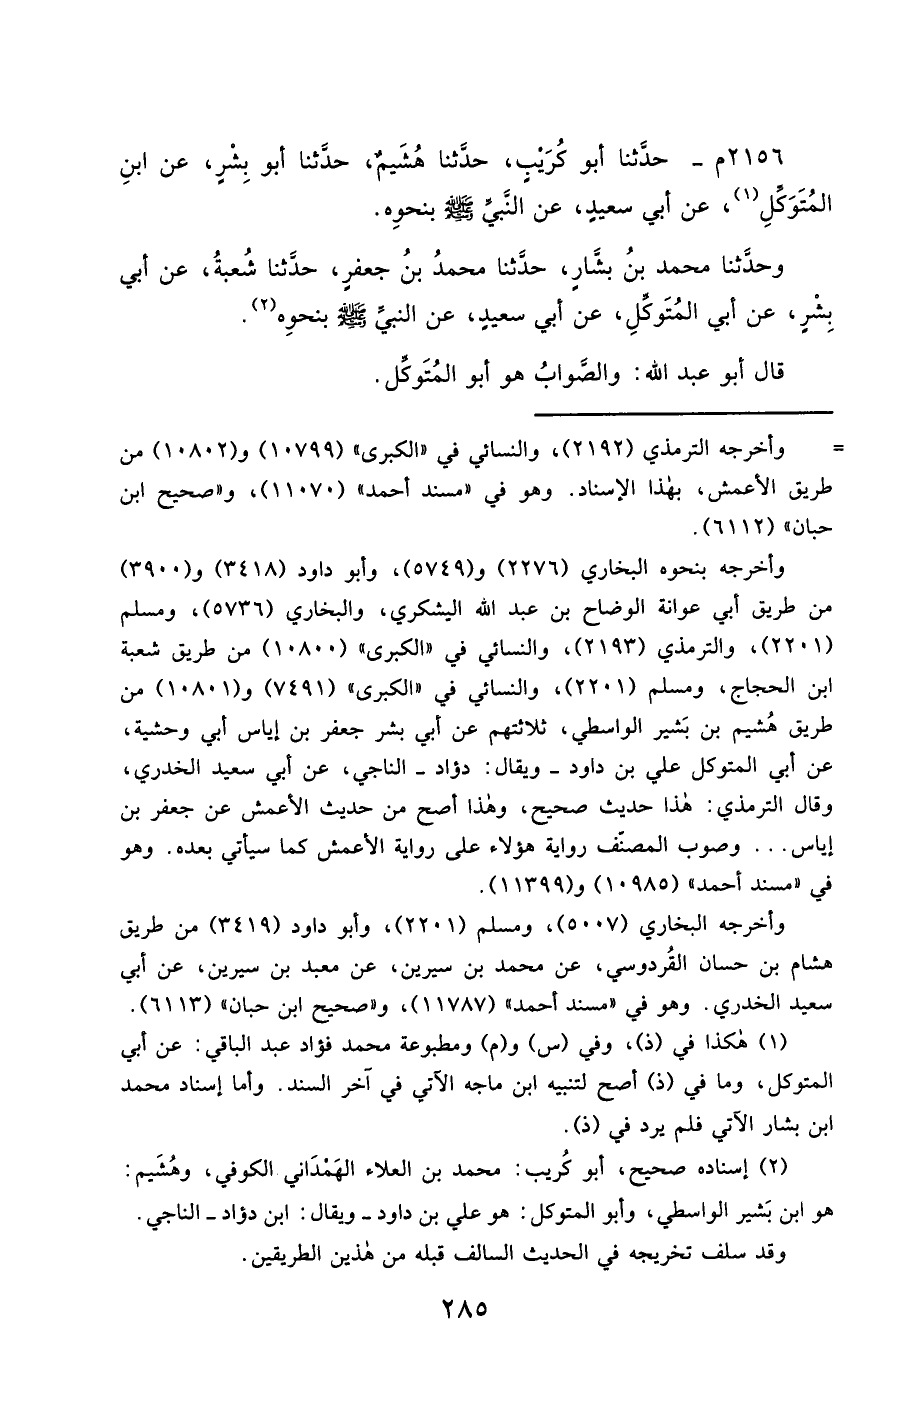 ٢١٥٦م ـ حدَّثنا أبو كُرَيْبٍ، حدَّثنا هُشَيمٌ، حدَّثنا أبو بِشْرٍ، عن ابنِ
المُتَوَكِّلِ(١)، عن أبي سعيدٍ، عن النَّبيِّ ﷺ بنحوِه.
وحدَّثنا محمد بنُ بشَّارٍ، حدَّثنا محمدُ بنُ جعفرٍ، حدَّثنا شُعبةُ، عن أبي
بِشْرٍ، عن أبي المُتَوكِّلِ، عن أبي سعيدٍ، عن النبيِّ ﷺ بنحوِه(٢).
قال أبو عبد الله: والصَّوابُ هو أبو المُتَوكِّل.
= وأخرجه الترمذي (٢١٩٢)، والنسائي في «الكبرى» (١٠٧٩٩) و(١٠٨٠٢) من
طريق الأعمش، بهٰذا الإسناد. وهو في «مسند أحمد» (١١٠٧٠)، و«صحيح ابن
حبان» (٦١١٢).
وأخرجه بنحوه البخاري (٢٢٧٦) و(٥٧٤٩)، وأبو داود (٣٤١٨) و(٣٩٠٠)
من طريق أبي عوانة الوضاح بن عبد الله اليشكري، والبخاري (٥٧٣٦)، ومسلم
(٢٢٠١)، والترمذي (٢١٩٣)، والنسائي في «الكبرى» (١٠٨٠٠) من طريق شعبة
ابن الحجاج، ومسلم (٢٢٠١)، والنسائي في «الكبرى» (٧٤٩١) و(١٠٨٠١) من
طريق هُشيم بن بَشير الواسطي، ثلاثتهم عن أبي بشر جعفر بن إياس أبي وحشية،
عن أبي المتوكل علي بن داود ـ ويقال: دؤاد ـ الناجي، عن أبي سعيد الخدري،
وقال الترمذي: هٰذا حديث صحيح، وهٰذا أصح من حديث الأعمش عن جعفر بن
إياس... وصوب المصنّف رواية هؤلاء على رواية الأعمش كما سيأتي بعده. وهو
في «مسند أحمد» (١٠٩٨٥) و(١١٣٩٩).
وأخرجه البخاري (٥٠٠٧)، ومسلم (٢٢٠١)، وأبو داود (٣٤١٩) من طريق
هشام بن حسان القُردوسي، عن محمد بن سيرين، عن معبد بن سيرين، عن أبي
سعيد الخدري. وهو في «مسند أحمد» (١١٧٨٧)، و«صحيح ابن حبان» (٦١١٣).
(١) هٰكذا في (ذ)، وفي (س) و(م) ومطبوعة محمد فؤاد عبد الباقي: عن أبي
المتوكل، وما في (ذ) أصح لتنبيه ابن ماجه الآتي في آخر السند. وأما إسناد محمد
ابن بشار الآتي فلم يرد في (ذ).
(٢) إسناده صحيح، أبو كُريب: محمد بن العلاء الهَمْدَاني الكوفي، وهُشَيم:
هو ابن بَشير الواسطي، وأبو المتوكل: هو علي بن داود ـ ويقال: ابن دؤاد ـ الناجي.
وقد سلف تخريجه في الحديث السالف قبله من هٰذين الطريقين.
٢٨٥